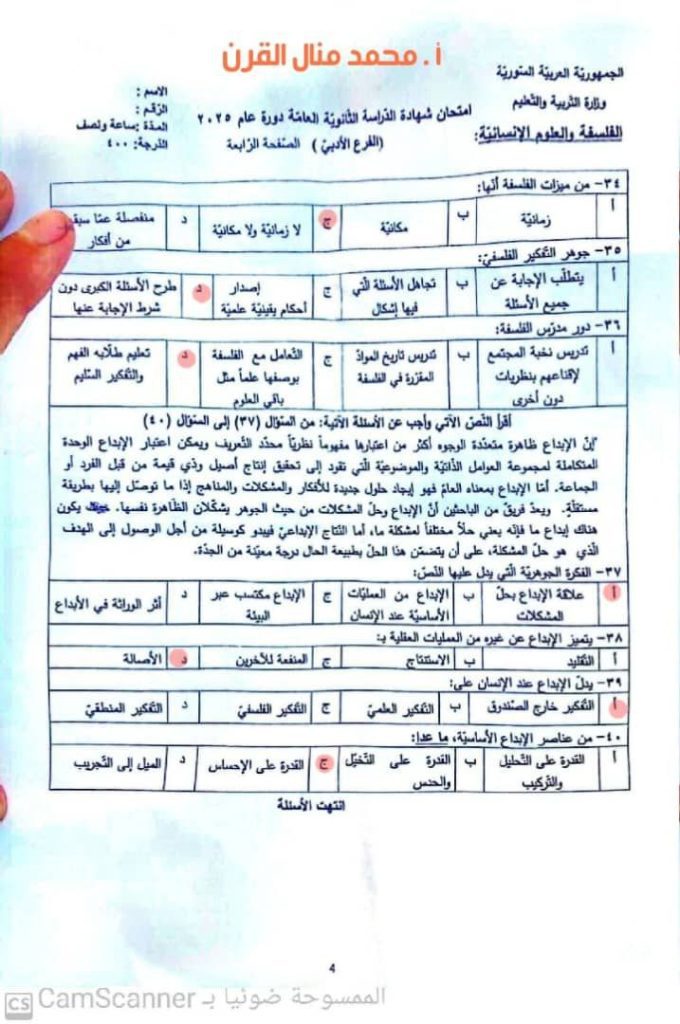 أ. محمد منال القرن
الجمهوريّة العربيّة السّوريّة
وزارة التّربية والتّعليم
الفلسفة والعلوم الإنسانيّة:
امتحان شهادة الدّراسة الثّانويّة العامّة دورة عام ٢٠٢٥
(الفرع الأدبيّ) الصّفحة الرّابعة
الاسم :
الرّقم :
المدّة :ساعة ونصف
الدّرجة: ٤٠٠
٣٤- من ميزات الفلسفة أنّها:
أ زمانيّة ب مكانيّة ج لا زمانيّة ولا مكانيّة د منفصلة عمّا سبق
من أفكار
٣٥- جوهر التّفكير الفلسفيّ:
أ يتطلّب الإجابة عن ب تجاهل الأسئلة الّتي ج إصدار د طرح الأسئلة الكبرى دون
جميع الأسئلة فيها إشكال أحكام يقينيّة علميّة شرط الإجابة عنها
٣٦- دور مدرّس الفلسفة:
أ تدريس نخبة المجتمع ب تدريس تاريخ الموادّ ج التّعامل مع الفلسفة د تعليم طلّابه الفهم
لإقناعهم بنظريات المقرّرة في الفلسفة بوصفها علماً مثل والتّفكير السّليم
دون أخرى باقي العلوم
اقرأ النّصّ الآتي وأجب عن الأسئلة الآتية: من السّؤال (٣٧) إلى السّؤال (٤٠)
"إنّ الإبداع ظاهرة متعدّدة الوجوه أكثر من اعتبارها مفهوماً نظريّاً محدّد التّعريف ويمكن اعتبار الإبداع الوحدة
المتكاملة لمجموعة العوامل الذّاتيّة والموضوعيّة الّتي تقود إلى تحقيق إنتاج أصيل وذي قيمة من قبل الفرد أو
الجماعة. أمّا الإبداع بمعناه العامّ فهو إيجاد حلول جديدة للأفكار والمشكلات والمناهج إذا ما توصّل إليها بطريقة
مستقلّة. ويعدّ فريق من الباحثين أنّ الإبداع وحلّ المشكلات من حيث الجوهر يشكّلان الظّاهرة نفسها. يكون
هناك إبداع ما فإنّه يعني حلاً مختلفاً لمشكلة ما، أما النّتاج الإبداعيّ فيبدو كوسيلة من أجل الوصول إلى الهدف
الّذي هو حلّ المشكلة، على أن يتضمّن هذا الحلّ بطبيعة الحال درجة معيّنة من الجدّة.
٣٧- الفكرة الجوهريّة الّتي يدل عليها النّصّ:
أ علاقة الإبداع بحلّ ب الإبداع من العمليّات ج الإبداع مكتسب عبر د أثر الوراثة في الأبداع
المشكلات الأساسيّة عند الإنسان البيئة
٣٨- يتميز الإبداع عن غيره من العمليات العقلية بـ:
أ التّقليد ب الاستنتاج ج المنفعة للآخرين د الأصالة
٣٩- يدلّ الإبداع عند الإنسان على:
أ التّفكير خارج الصّندوق ب التّفكير العلميّ ج التّفكير الفلسفيّ د التّفكير المنطقيّ
٤٠- من عناصر الإبداع الأساسيّة، ما عدا:
أ القدرة على التّحليل ب القدرة على التّخيّل ج القدرة على الإحساس د الميل إلى التّجريب
والتّركيب والحدس
انتهت الأسئلة
4
الممسوحة ضوئيا بـ CamScanner
CS